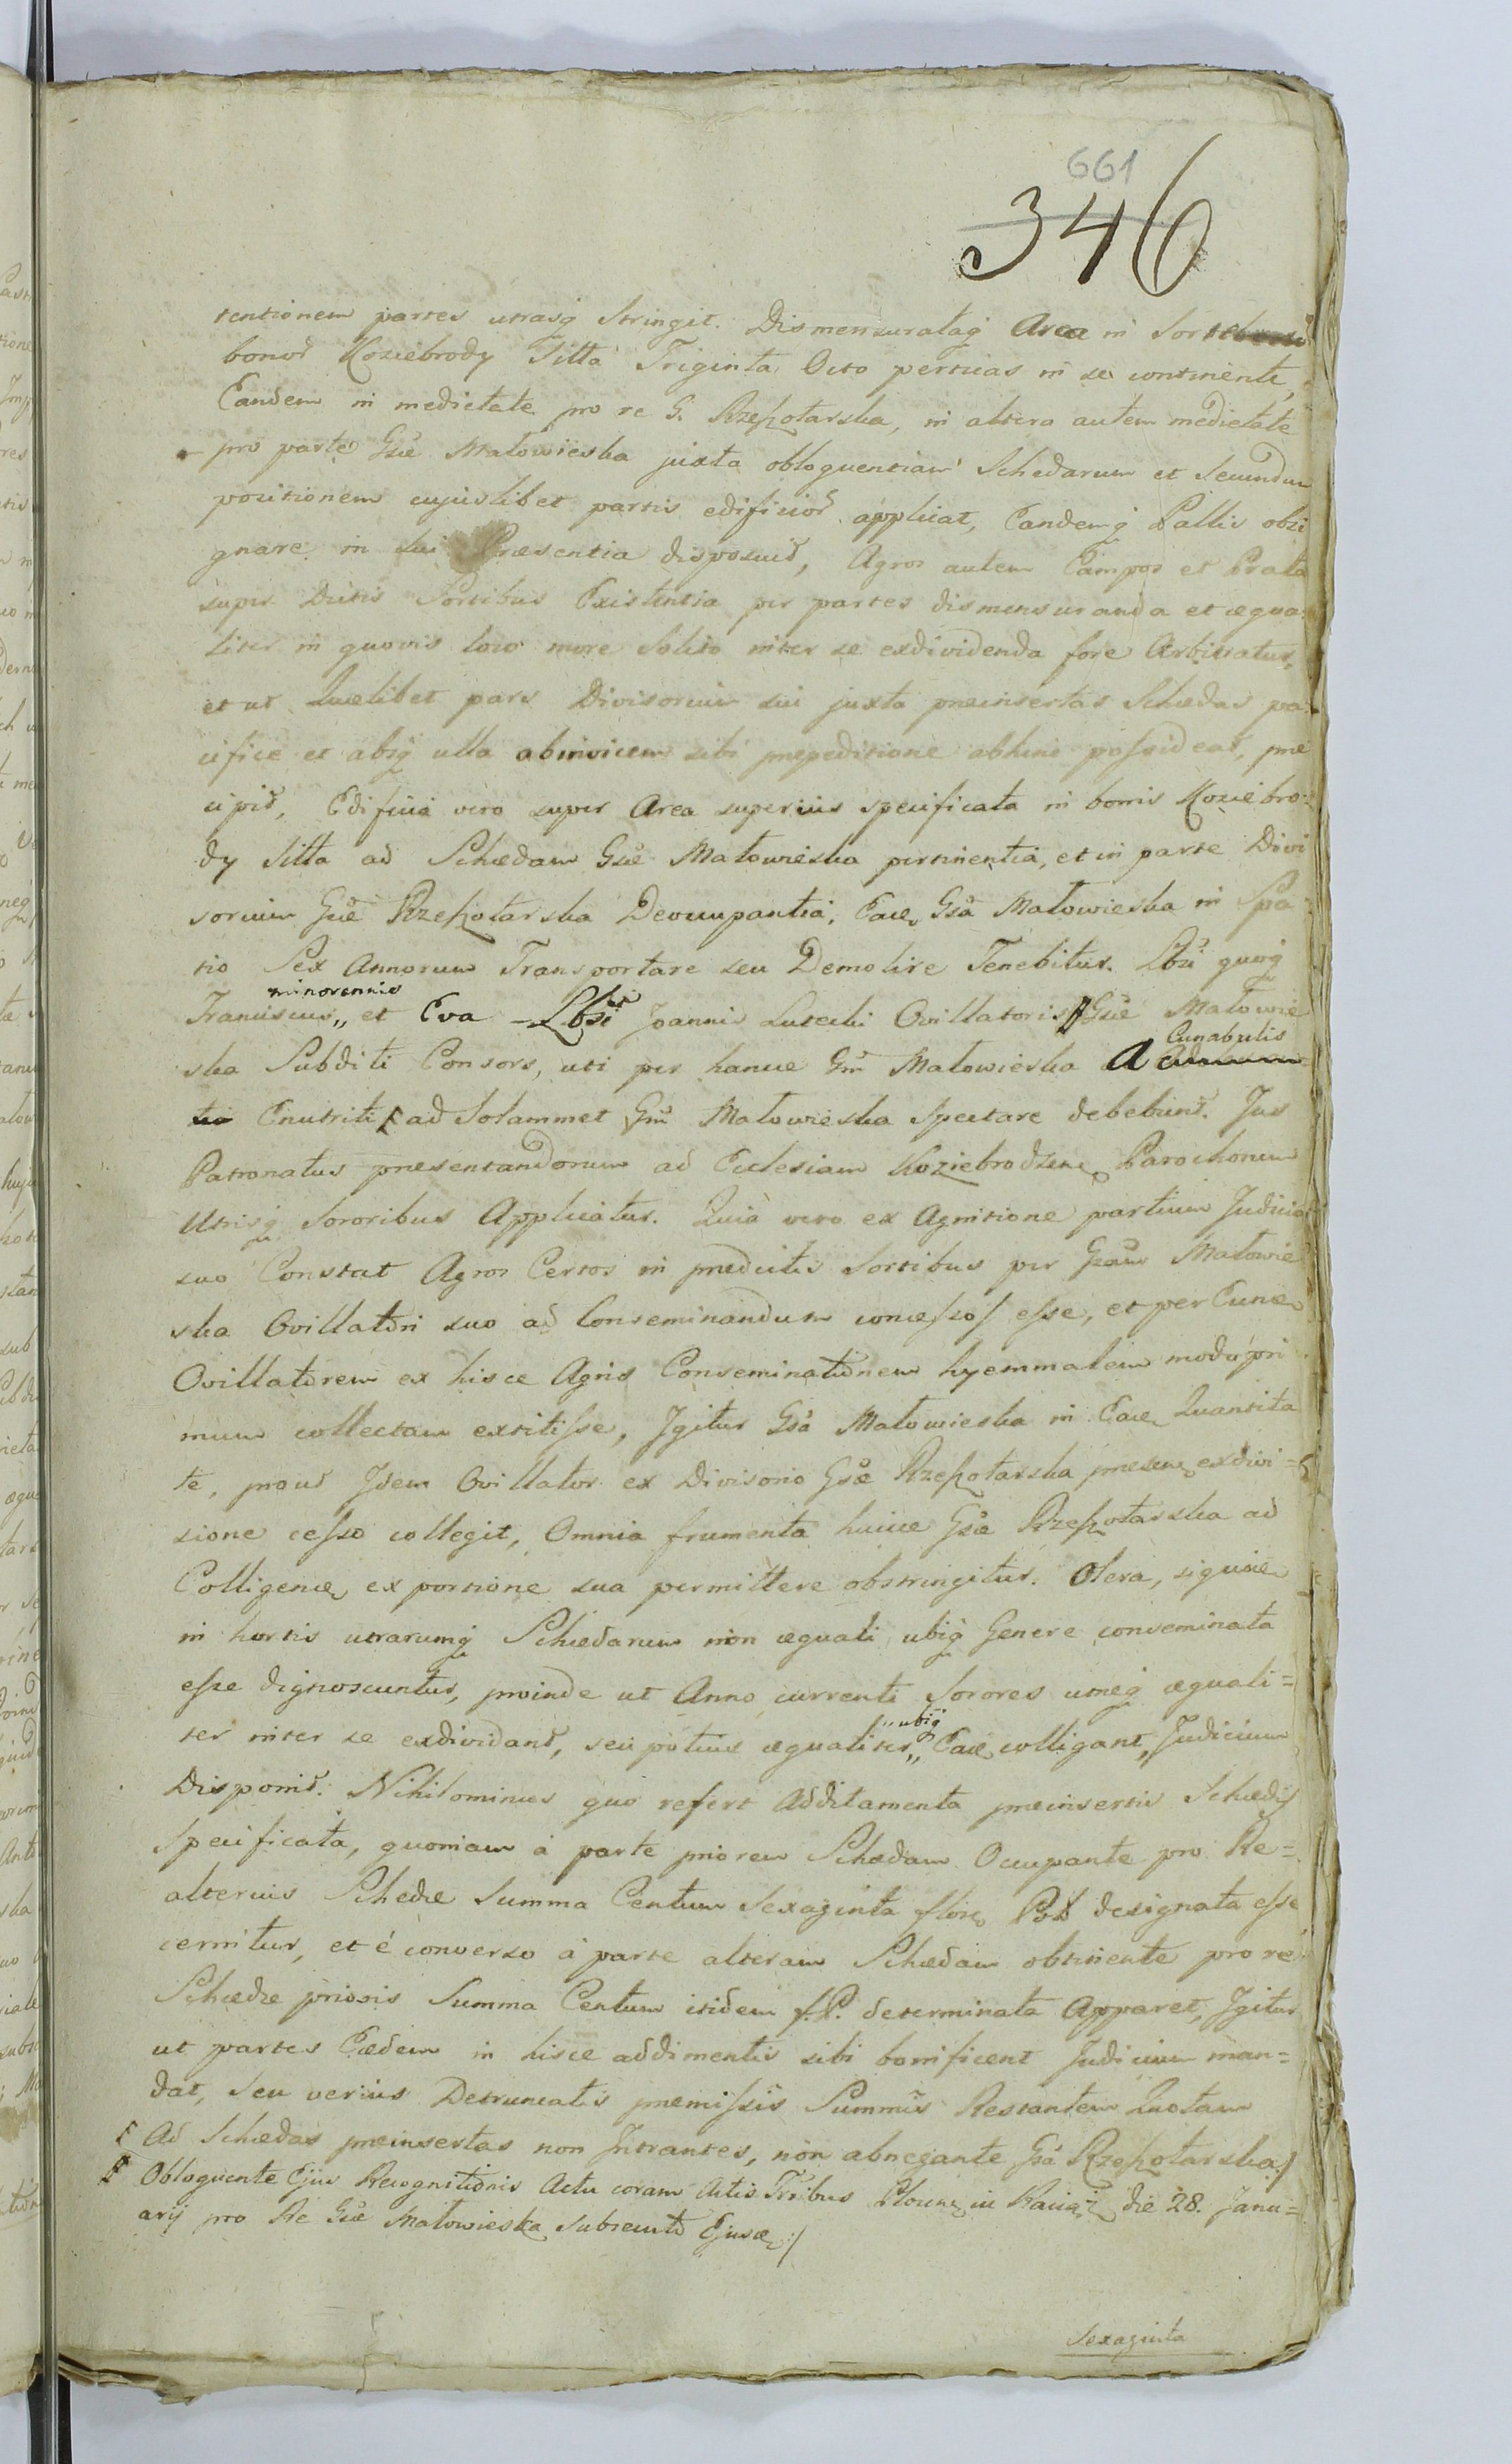 661
346
tentionem partes utrasq stringit. Dismensurataq Area in Sortebus
bonor Koziebrody Sitta Triginta Octo perticas in se continente,
Eandem in medietate pro re G. Rzeszotarska, in altera autem medietate
pro parte Gsæ Małowieska juxta obloquentiam Schedarum et Secundum
positionem cujuslibet partis edificior appliat, Eandemq Pallis obsi
gnare in sui Præsentia disposuit, Agros autem Campos et Prata
super Dictis Sortibus Existentia per partes dismensuranda et æqua-
liter in quovis loco more Solito inter se exdividenda fore Arbitratur,
et ut Quælibet pars Divisorium sui juxta preinsertas Schedas pa-
cifice et absq ulla abinvicem sibi prepeditione abhinc possideat, præ
cipit, Edificia vero super Area superius specificata in bonis Koziebro-
dy Sitta ad Schædam Gsæ Małowieska pertinentia, et in parte Divi
sorium Gsæ Rzeszotarska Deoccupantia, Eaæ Gsa Małowieska in Spa
tio Sex Annorum Transportare seu Demolire Tenebitur. Lbsi quoq
minorennis
Franciscus,, et Eva - Lbsi Joannis Lutecki Ovillatoris Gsæ Małowie
ska Subditi Consors, uti per hance Gm Małowieska A
Cunabulis
Enutriti ad Solammet Gm Małowieska Spectare debebunt. Jus
Patronatus presentandorum ad Ecclesiam Koziebrodzen Parochorum
Utrisq Sororibus Applicatur. Quia vero ex Agnitione partium Judicio
suo Constat Agros Certos in predictis Sortibus per Gsam Małowie
ska Ovillatori suo ad Conseminandum concessos esse, et per Eunæ
Ovillatorem ex hisce Agris Conseminationem hyemmalem modo pri
mum collectam extitisse, Igitur Gsa Małowieska in Eaæ Quantita
te, prout Idem Ovillator ex Divisorio Gsæ Rzeszotarska presen exdivi-
sione cesso collegit, Omnia frumenta huice Gsæ Rzeszotarska ad
Colligenæ ex portione sua permittere obstringitur. Olera, siquidem
in hortis utrarumq Schædarum non æquali ubiq Genere conseminata
esse dignoscuntur, proinde ut Anno currenti Sorores umeq æquali=
ter inter se exdividant, seu potius æqualiter,,
,, ubiq
Eaæ colligant, Judicium
Disponit. Nihilominus quo refert Additamenta preinsertis Schædis
Specificata, quoniam à parte priorem Schædam Occupante pro Re=
alterius Schedæ Summa Centum Sexaginta flor Pol designata esse
cernitur, et é converso à parte alteram Schædam obtinente pro re
Schædæ prioris Summa Centum itidem f.P. determinata Apparet, Igitur
ut partes Eædem in hisce addimentis sibi bonificent Judicium man=
dat, seu verius Detruncatis premissis Summis Restantem Quotam
Ad Schædas preinsertas non Intrantes, non abnegante Gsa Rzeszotarska/
Obloquente Ejus Recognitionis Actu coram Actis Tribus Plocen in Raciąż die 28. Janu=
arij pro Re Gsæ Małowieska Subsecuto Ejusæ :/
Sexaginta